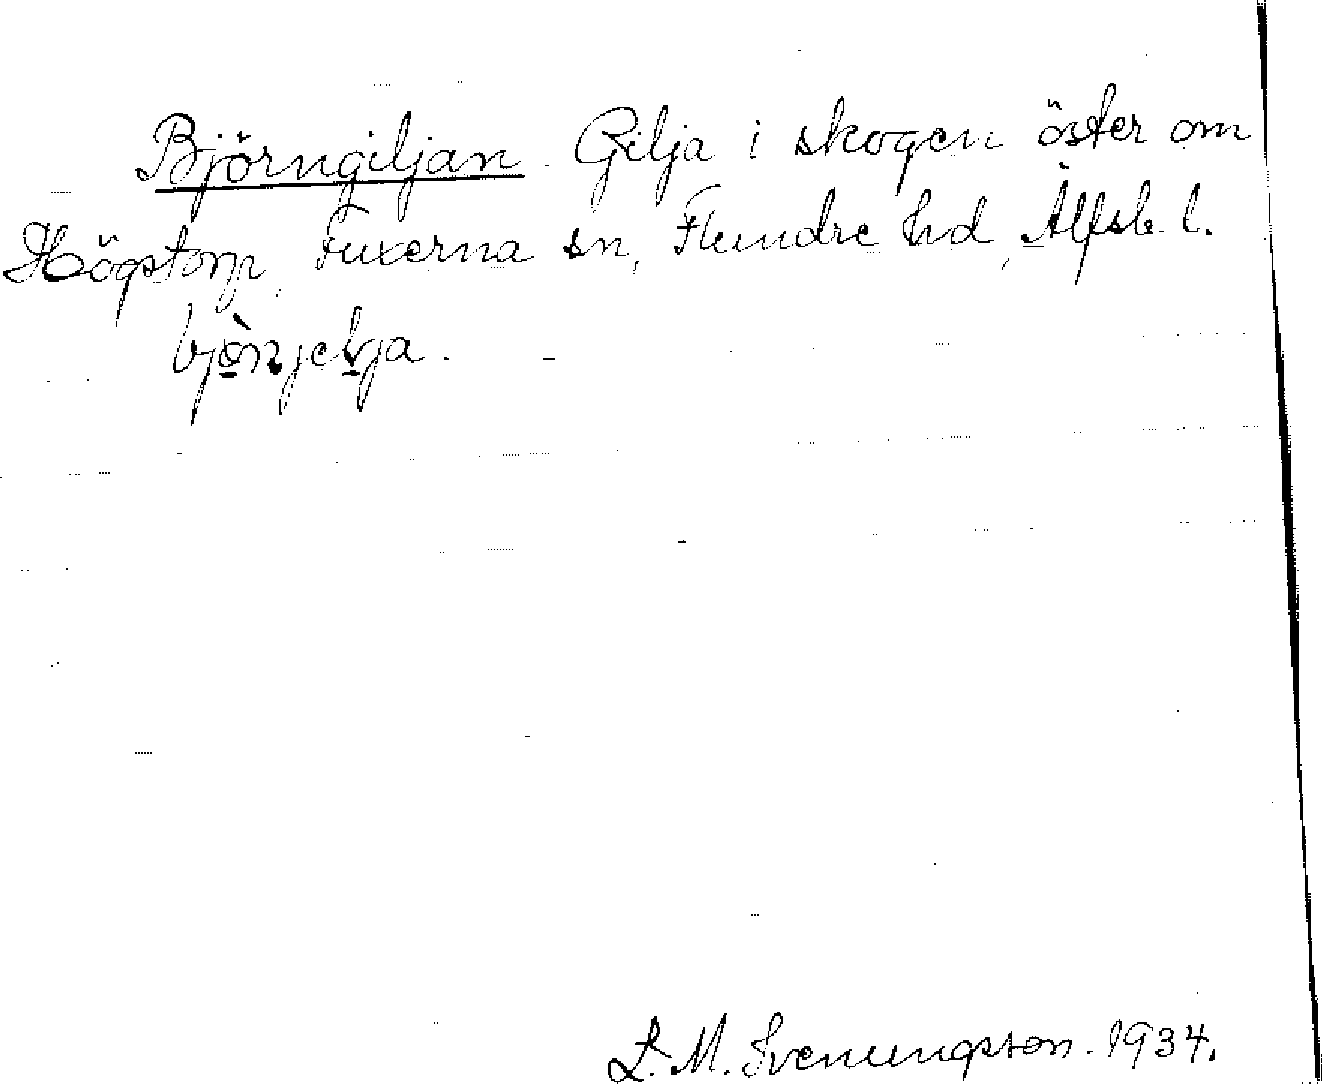 Björngiljan. Gilja i skogen öster om
Högstorp, Fuxerna sn, Flundre hd, Älfsb. l.
L. M. Svenungsson. 1934.